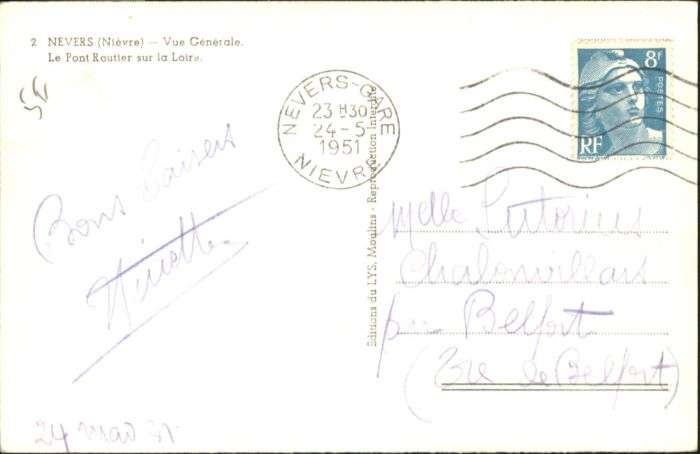 2 NEVERS (Nièvre) — Vue Générale.
Le Pont Routier sur la Loire.
NEVERS-GARE
23 H30
24-5
1951
NIEVRE
8F
POSTES
RF
Bons baisers
Ninette
24 mai 51
Editions du LYS, Moulins - Reproduction Interdite
Melle Sutorius
Chalonvillars
par Belfort
(Tre de Belfort)